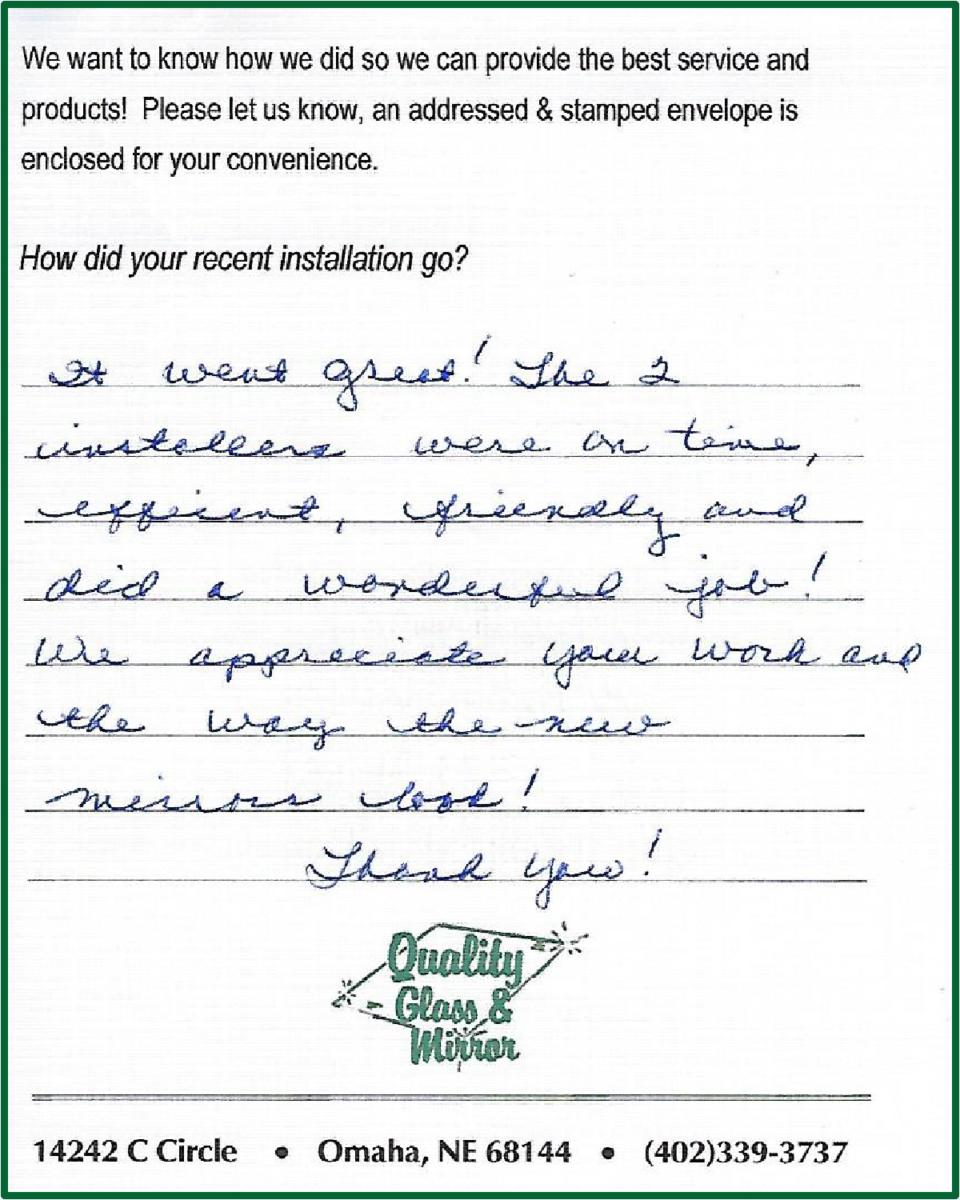 We want to know how we did so we can provide the best service and
products! Please let us know, an addressed & stamped envelope is
enclosed for your convenience.
How did your recent installation go?
It went great! The 2
installers were on time,
efficient, friendly and
did a wonderful job!
We appreciate your work and
the way the new
mirrors look!
Thank you!
Quality
Glass &
Mirror
14242 C Circle • Omaha, NE 68144 • (402)339-3737